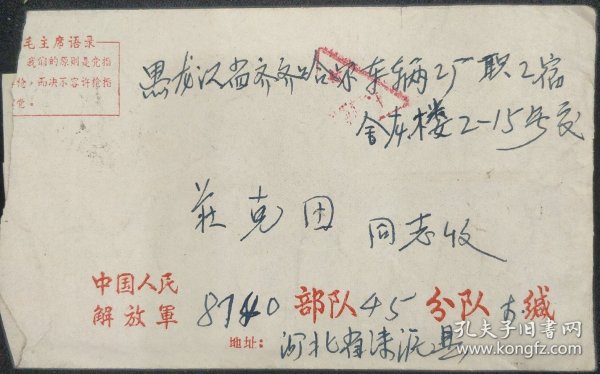 毛主席语录
我们的原则是党指
挥枪，而决不容许枪指
挥党。
黑龙江省齐齐哈尔车辆工厂职工宿
舍东楼2-15号交
庄克田 同志收
中国人民
解放軍 8740 部队 45 分队 缄
地址：河北省涞源县
孔夫子旧书网
www.kongfz.com